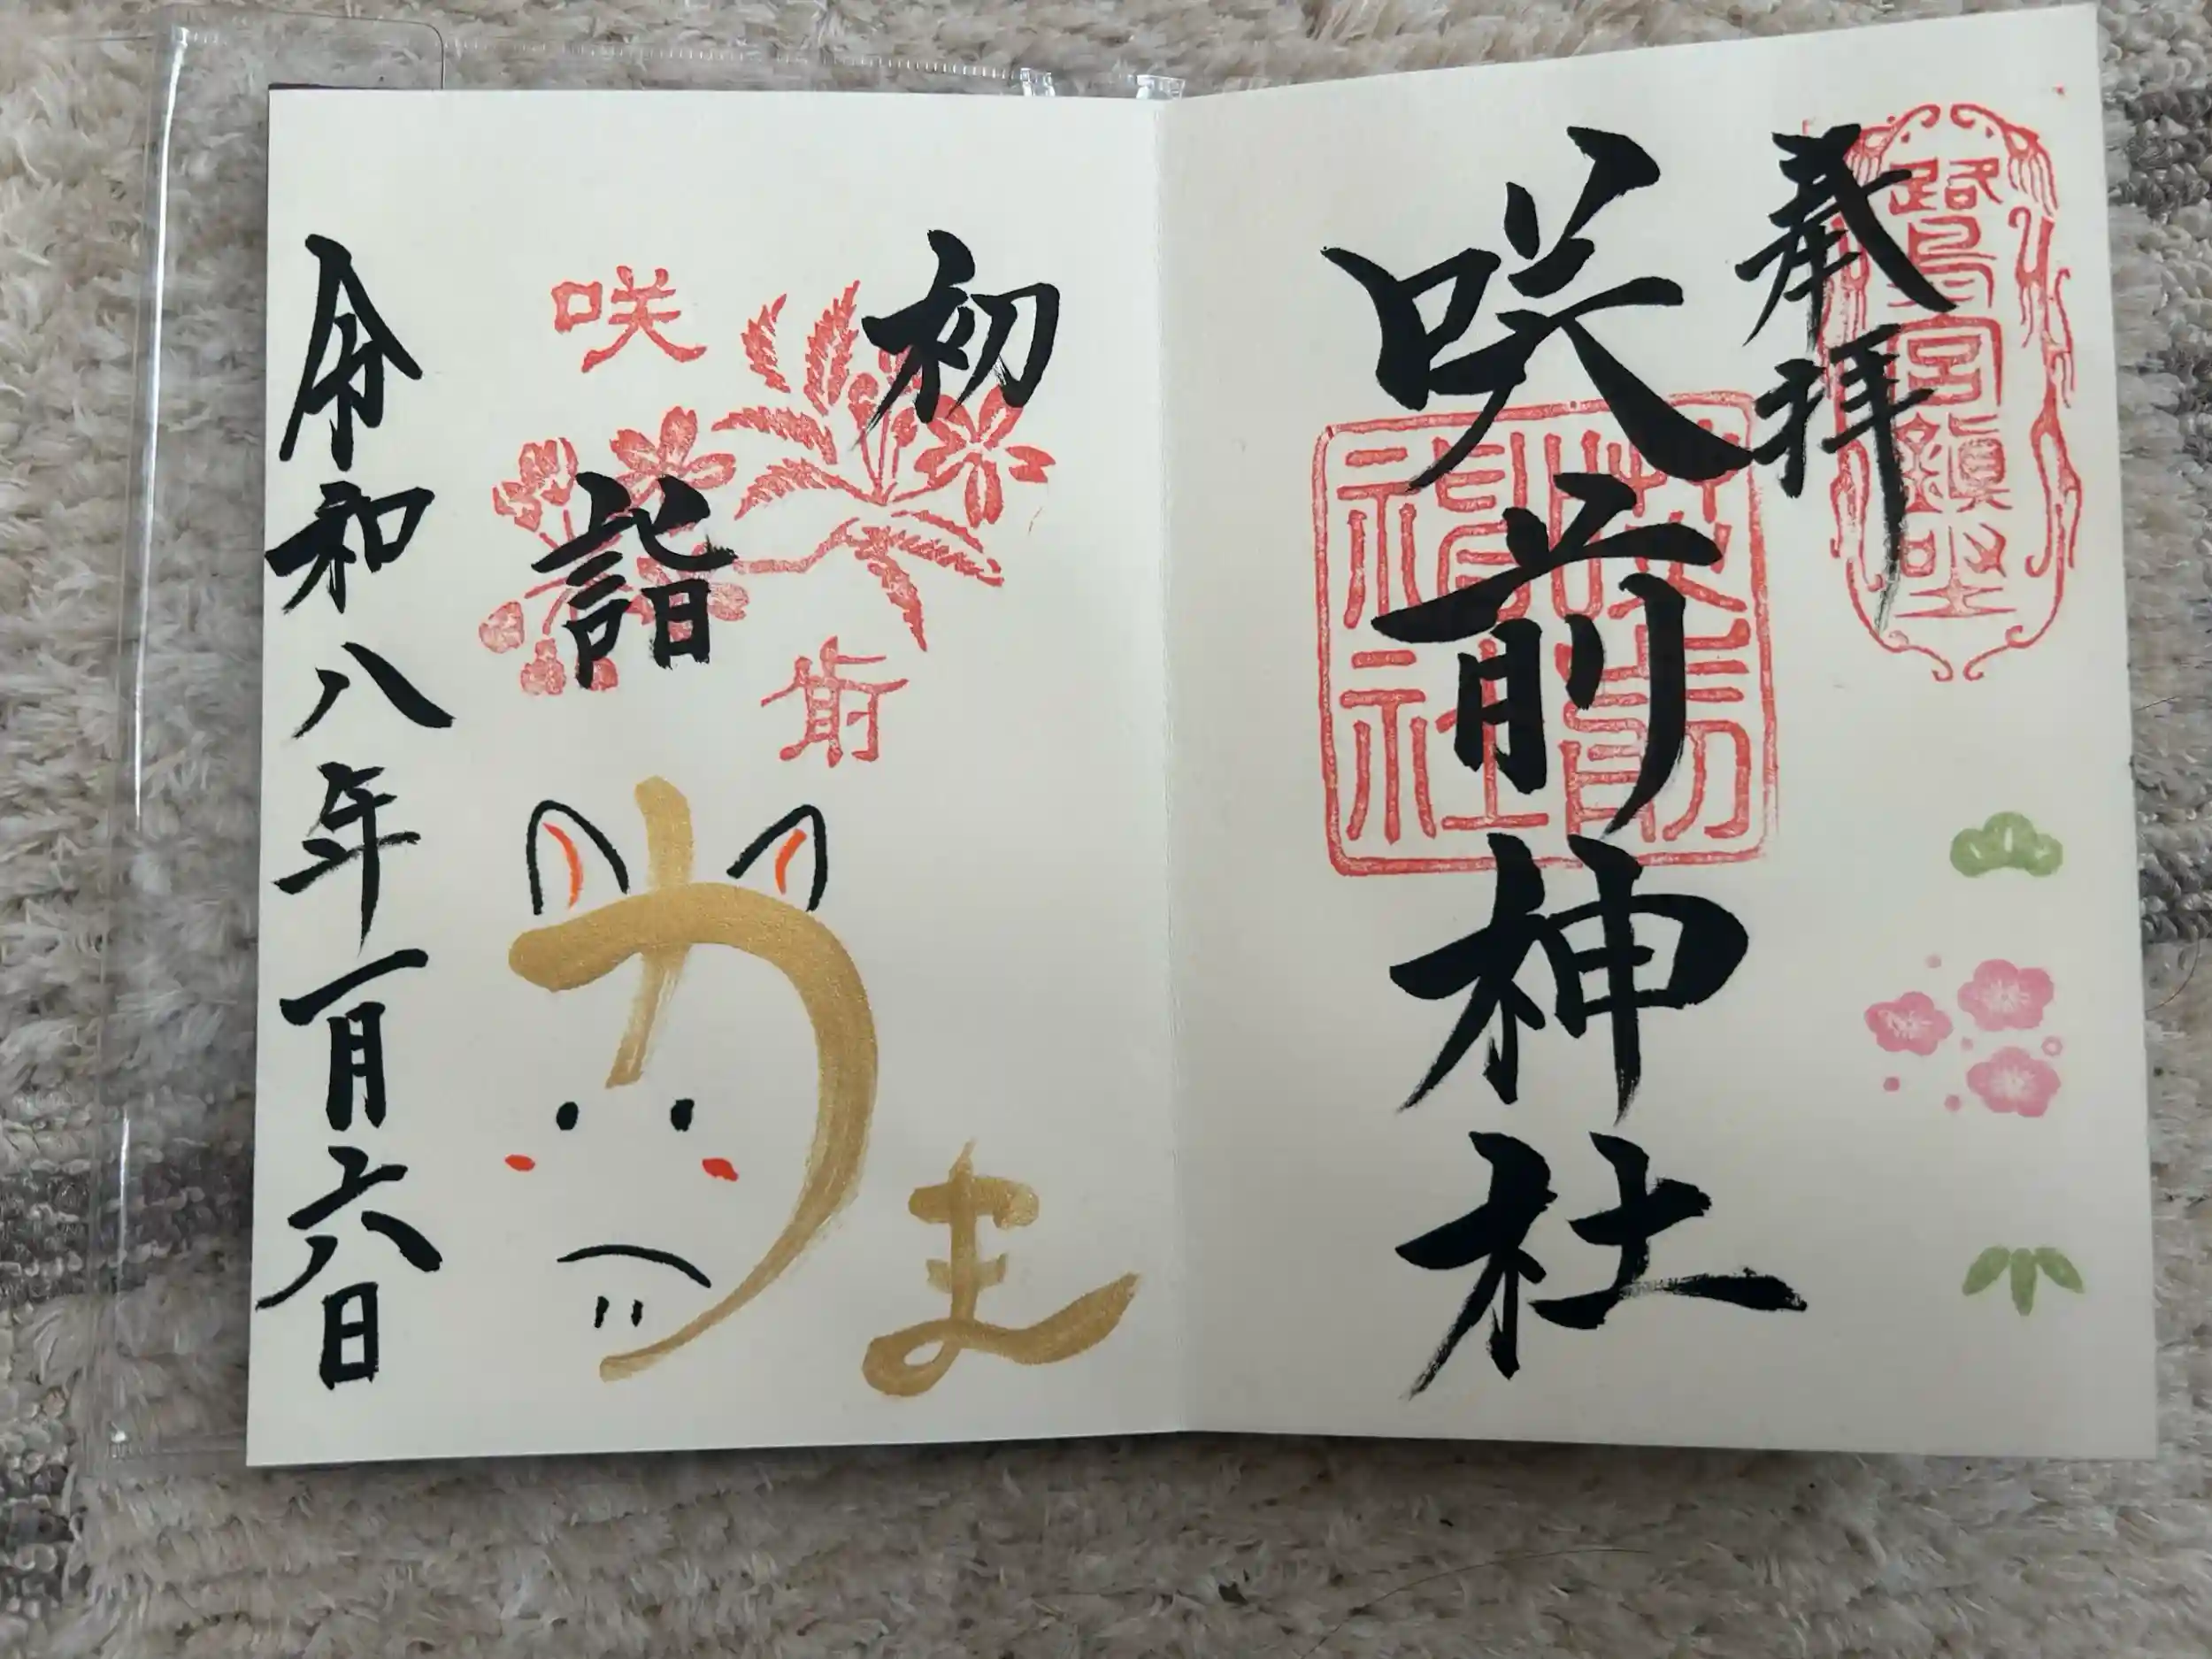 鷺宮鎮座
奉拝
咲前神社
咲前神社
初詣
咲前
うま
令和八年一月六日